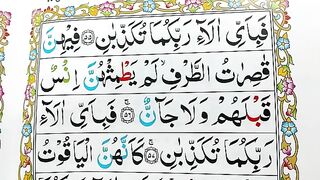 فَبِاَيِّ اٰلَآءِ رَبِّكُمَا تُكَذِّبٰنِ ﴿۵۵﴾ فِيْهِنَّ
قٰصِرٰتُ الطَّرْفِ لَمْ يَطْمِثْهُنَّ اِنْسٌ
قَبْلَهُمْ وَلَا جَآنٌّ ﴿۵۶﴾ فَبِاَيِّ اٰلَآءِ
رَبِّكُمَا تُكَذِّبٰنِ ﴿۵۷﴾ كَاَنَّهُنَّ الْيَاقُوْتُ